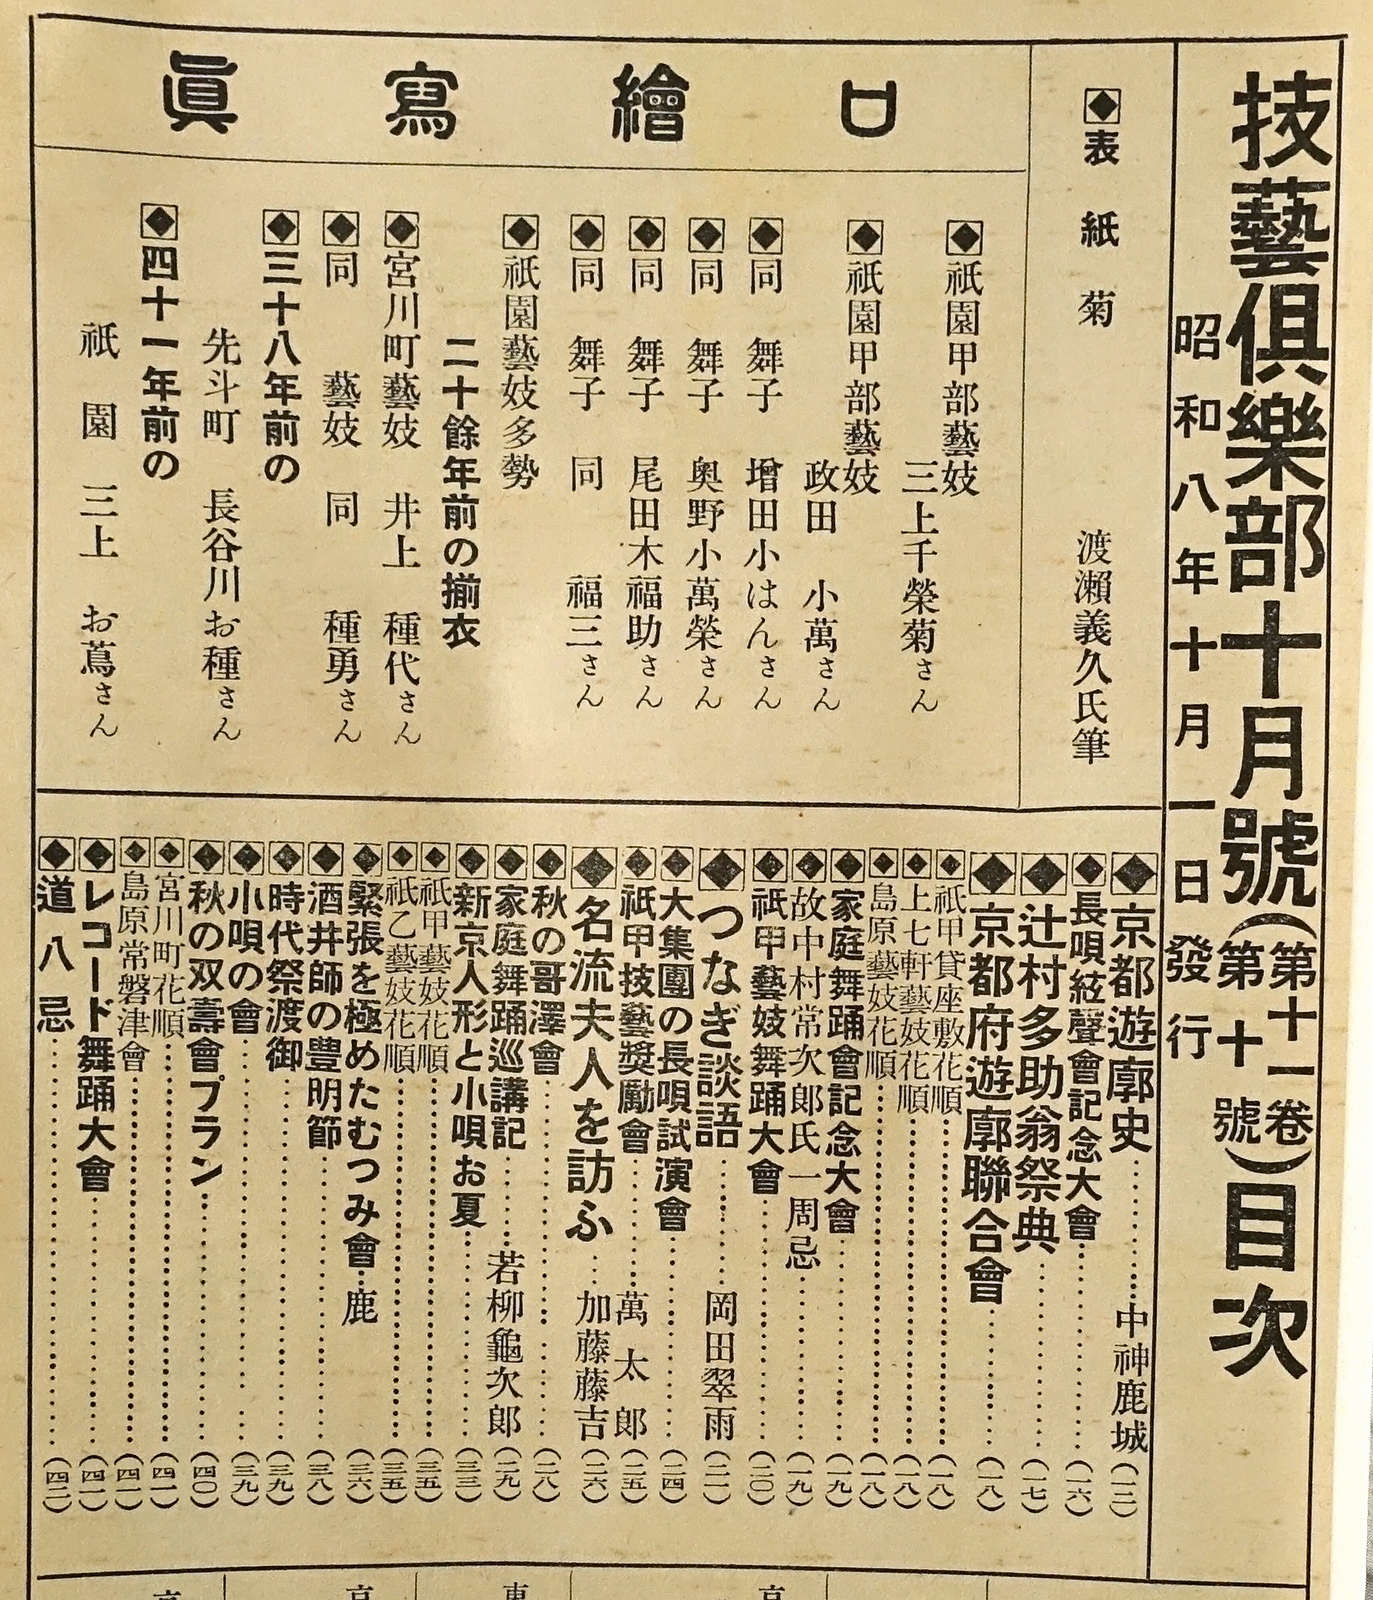 技藝倶樂部十月號(第十一卷第十號)目次
昭和八年十月一日發行
表紙 菊 渡瀨義久氏筆
口繪寫眞
祇園甲部藝妓
三上千榮菊さん
祇園甲部藝妓
政田 小萬さん
同 舞子 增田小はんさん
同 舞子 奥野小萬榮さん
同 舞子 尾田木福助さん
同 舞子 同 福三さん
祇園藝妓多勢
二十餘年前の揃衣
宮川町藝妓 井上 種代さん
同 藝妓 同 種勇さん
三十八年前の
先斗町 長谷川お種さん
四十一年前の
祇園 三上 お蔦さん
京都遊廓史 中神鹿城 (一二)
長唄絃聲會記念大會 (一六)
辻村多助翁祭典 (一七)
京都府遊廓聯合會 (一八)
祇甲貸座敷花順 (一八)
上七軒藝妓花順 (一八)
島原藝妓花順 (一八)
家庭舞踊會記念大會 (一九)
故中村常次郎氏一周忌 (一九)
祇甲藝妓舞踊大會 (二〇)
つなぎ談語 岡田翠雨 (二一)
大集團の長唄試演會 (二四)
祇甲技藝奬勵會 萬太郎 (二五)
名流夫人を訪ふ 加藤藤吉 (二六)
秋の哥澤會 (二八)
家庭舞踊巡講記 若柳龜次郎 (二九)
新京人形と小唄お夏 (三三)
祇甲藝妓花順 (三五)
祇乙藝妓花順 (三五)
緊張を極めたむつみ會 鹿 (三六)
酒井師の豊明節 (三八)
時代祭渡御 (三九)
小唄の會 (三九)
秋の双壽會プラン (四〇)
宮川町花順 (四一)
島原常磐津會 (四一)
レコード舞踊大會 (四一)
道八忌 (四二)
京
東
京